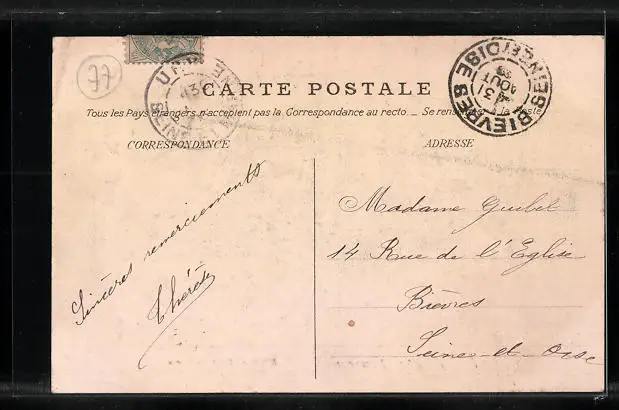 77
CARTE POSTALE
Tous les Pays étrangers n'acceptent pas la Correspondance au recto. _ Se rens à la Poste
CORRESPONDANCE
ADRESSE
Sincères remerciements
Thérèse
Madame Guibel
14 Rue de l'Eglise
Bièvres
Seine-et-Oise
BIEVRES
SEINE ET OISE
AOUT